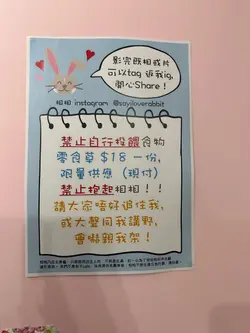 影完既相或片
可以tag 返我ig,
開心Share!
相相 instagram @soyiloverabbit
禁止自行投餵食物
零食草 $18 一份,
限量供應 (現付)
禁止抱起相相!!
請大家唔好追住我,
或大聲同我講野,
會嚇親我架!